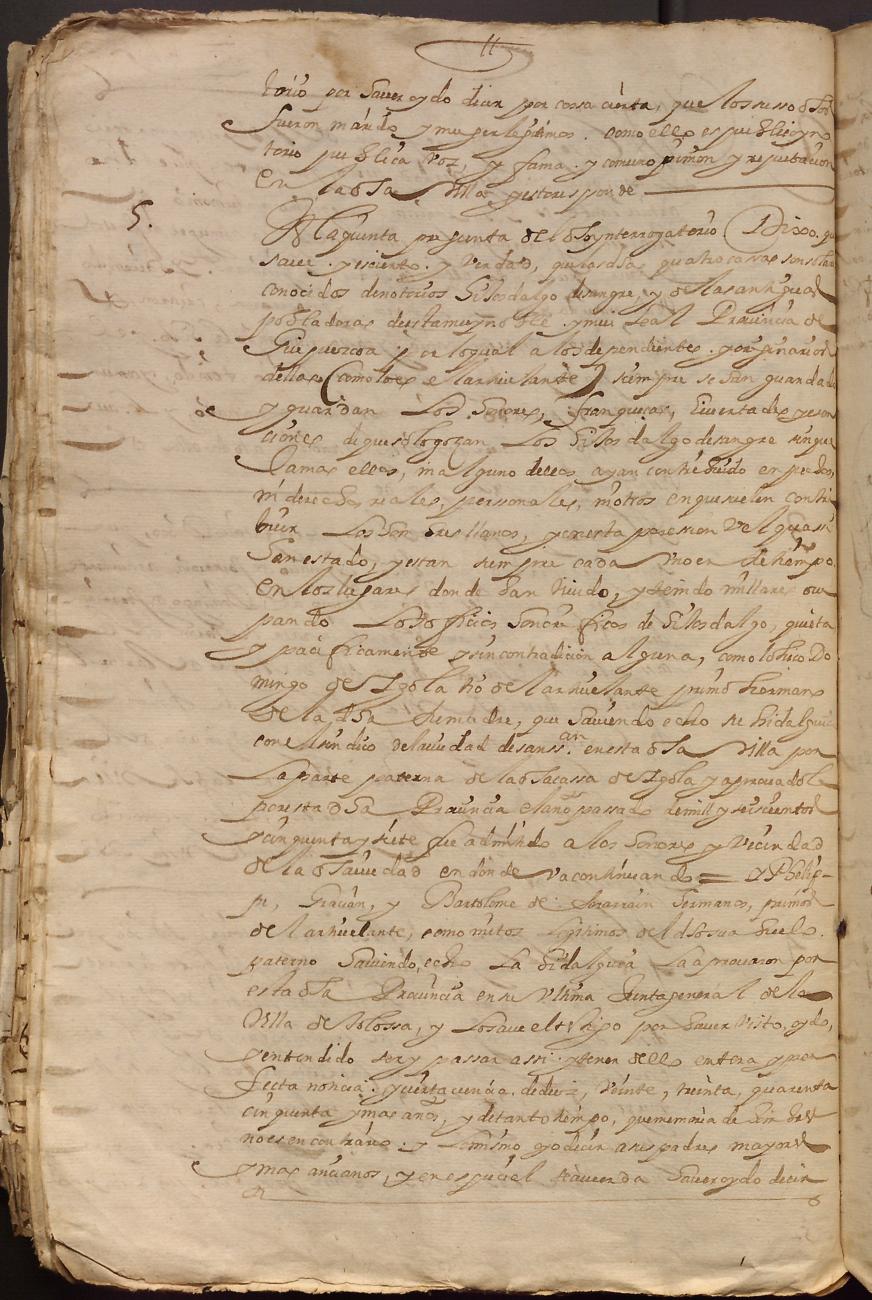 11
torio por haver oydo decir por cossa cierta, que los susso dhos
fueron marido y muger lexitimos. como ello es publico y no
torio publica voz y fama. y comun opinion y reputacion
en la dha villa y esto responde
5. A la quinta pregunta del dho ynterrogatorio Dixo. que
save. y es cierto. y verdad, que las dhas quatro cassas son solares
conocidos de notorios hijosdalgo de sangre, y de las antiguas
pobladoras de esta muy noble. y mui leal Provincia de
Guipuzcoa y de lo qual a los dependientes. y originarios
dellas (como lo es el articulante) siempre se han guardado
y guardan los honores, franquezas, livertades y esen
ciones de que solo gozan los hijosdalgo de sangre sin que
Jamas ellos, ni alguno dellos ayan contribuido en pechos,
ni derechos reales, personales, ni otros en que suelen contri
buir los hombres llanos, y en esta posesion Vel quassi
han estado, y estan siempre cada uno en su tiempo
en los lugares donde han vivido, y tenido millares ocu
pando los officios honorificos de hijosdalgo, quieta
y pacificamente y sin contradicion alguna, como lo hico Do
mingo de Ygola tio del articulante primo hermano
de la dha su madre, que haviendo echo su hidalguia
con el sindico de la ciudad de san ssan en esta dha villa por
la parte paterna de la dha cassa de Ygola y aprovadole
por esta dha Provincia el año passado de mill y seiscientos
y cinquenta y siete fue admitido a los honores y vecindad
de la dha ciudad en donde va continuando = y Pheli-
pe, Gracian, y Bartolome de Ararrain hermanos, primos
del articulante, como nietos lexitimos del dho su abuelo
paterno haviendo, echo la hidalguia la aprovaron por
esta dha Provincia en su ultima Junta general de la
Villa de Tolossa, y lo save el testigo por haver visto, oydo,
y entendido ser y passar assi y tener dello entera y per
fecta noticia. y cierta ciencia. de diez, veinte, treinta, quarenta
cinquenta y mas años, y de tanto tiempo, que memoria de hombres
no es en contrario. y lo mismo oyo decir a sus padres mayores
y mas ancianos, y en especial se acuerda haver oydo decir